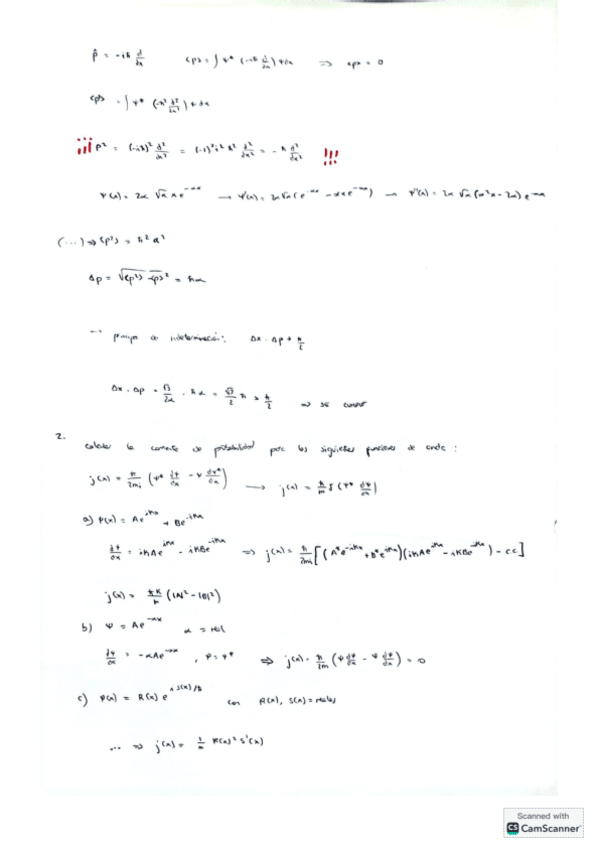 p̂ = -iħ d/dx   <p> = ∫ ψ* (-iħ d/dx) ψ dx ⇒ <p> = 0
<p²> = ∫ ψ* (-ħ² d²/dx²) ψ dx
¡¡¡ p² = (-iħ)² d²/dx² = (-1)² i² ħ² d²/dx² = -ħ d²/dx² !!!
ψ(x) = 2α √α x e^{-αx} → ψ'(x) = 2α√α (e^{-αx} - αx e^{-αx}) → ψ''(x) = 2α √α (α²x - 2α) e^{-αx}
(...) ⇒ <p²> = ħ² α²
Δp = √(<p²> - <p>²) = ħα
→ principio de indeterminación: Δx · Δp ≥ ħ/2
Δx · Δp = √3/2α · ħα = √3/2 ħ > ħ/2 ⇒ se cumple
2.
Calcular la corriente de probabilidad para las siguientes funciones de onda :
j(x) = ħ/2mi (ψ* dψ/dx - ψ dψ*/dx) → j(x) = ħ/m ℑ (ψ* dψ/dx)
a) ψ(x) = Ae^{ikx} + Be^{-ikx}
dψ/dx = ikAe^{ikx} - ikBe^{-ikx} ⇒ j(x) = ħ/2mi [(A*e^{-ikx} + B*e^{ikx})(ikAe^{ikx} - ikBe^{-ikx}) - cc]
j(x) = ħk/m (|A|² - |B|²)
b) ψ = Ae^{-αx}   α = real
dψ/dx = -αAe^{-αx} , ψ = ψ* ⇒ j(x) = ħ/2m (ψ dψ/dx - ψ dψ/dx) = 0
c) ψ(x) = R(x) e^{i S(x)/ħ}   con R(x), S(x) = reales
... ⇒ j(x) = 1/m R(x)² S'(x)
Scanned with
CS CamScanner